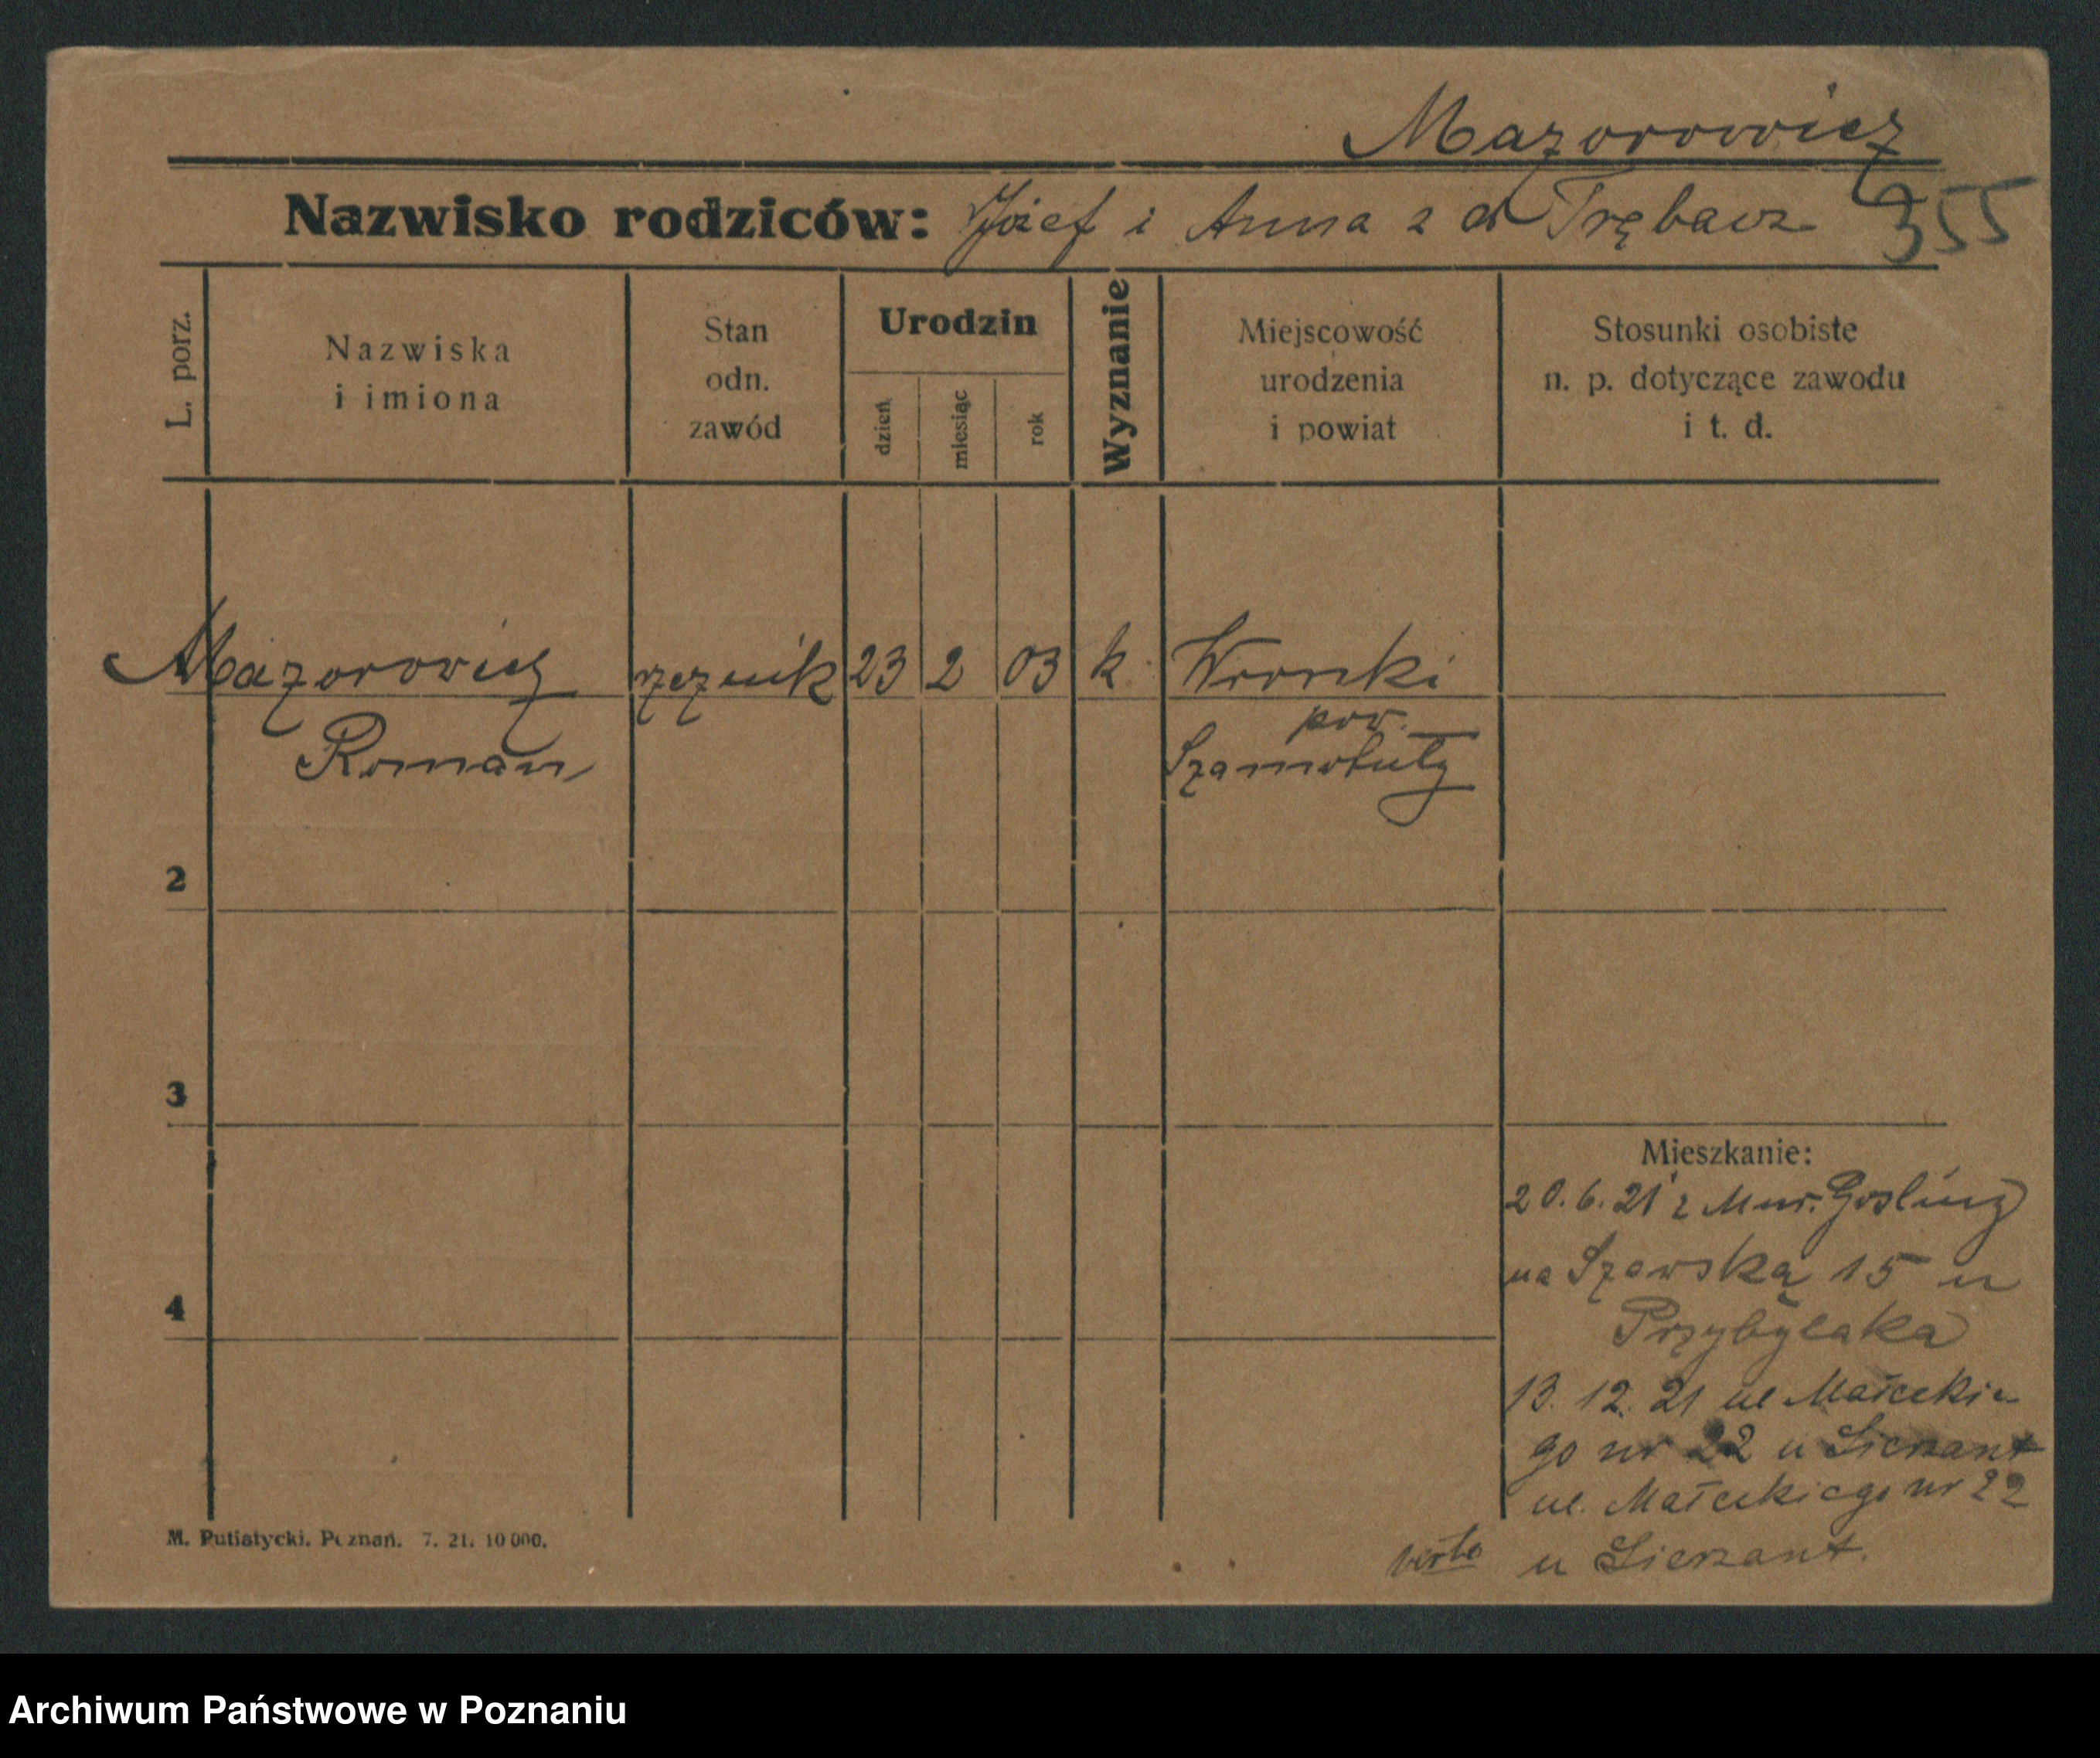 Mazorowicz
355
Nazwisko rodziców: Józef i Anna z d Trębacz
L. porz.
Nazwiska
i imiona
Stan
odn.
zawód
Urodzin
dzień
miesiąc
rok
Wyznanie
Miejscowość
urodzenia
i powiat
Stosunki osobiste
n. p. dotyczące zawodu
i t. d.
Mazorowicz rzeznik 23 2 03 k Wronki
Roman
pow.
Szamotuły
2
3
4
Mieszkanie:
20.6.21 z Mur. Gosliny
na Szewską 15 u
Przybylaka
13.12.21 ul Małeckie
go nr 22 u Sierzant
ul. Małeckiego nr 22
u Sierzant.
verte
M. Putiatycki. Poznań. 7. 21. 10 000.
Archiwum Państwowe w Poznaniu